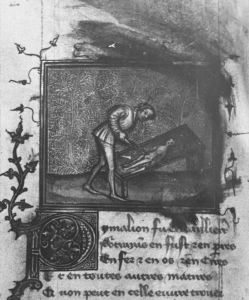 ymalion fu entaillier
en fust ⁊ en pieres
En fer ⁊ en os ⁊ en
Et en toutes autres matires
on peut en telle euvre trouver